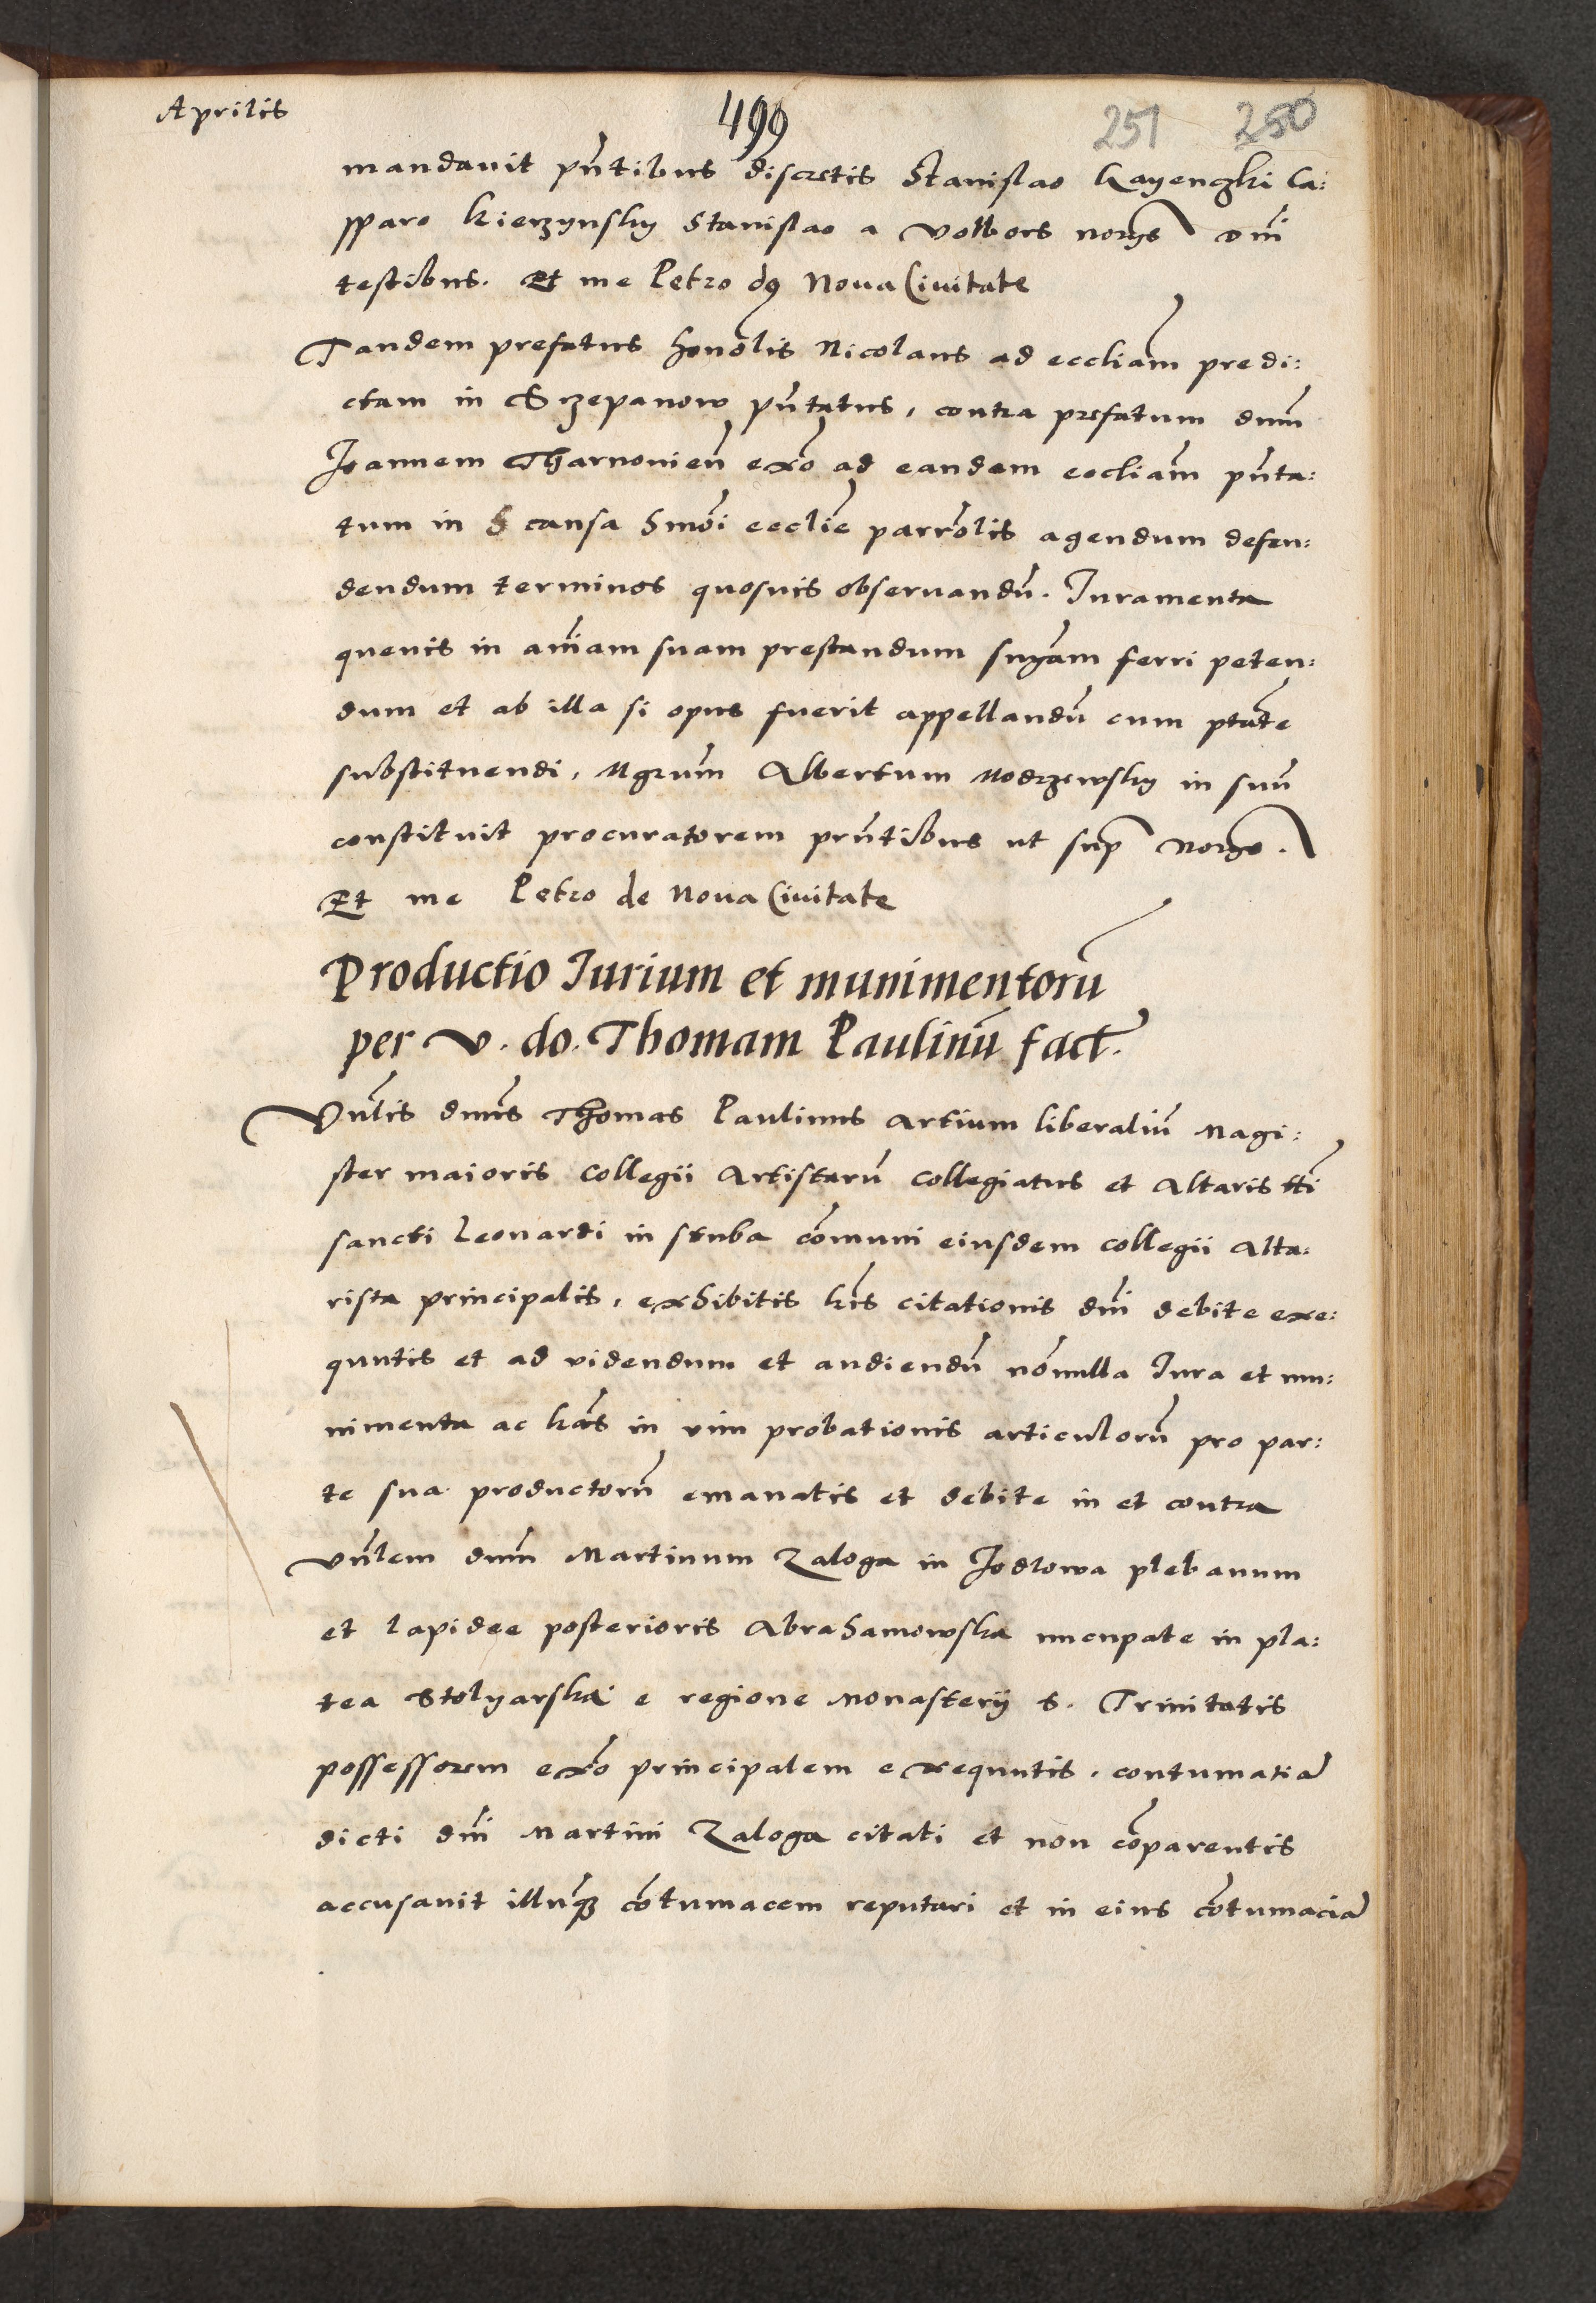 Aprilis
499
251 250
mandauit pn̄tibus discretis Stanislao Kayenczki Ca:
sparo Kierzynsky Stanislao a Volbors norys
testibus. Et me Petro de Noua Ciuitate
Tandem prefatus honōlis Nicolaus ad eccliam̄ predi:
ctam in Sczepanow pn̄tatus, contra prefatum dnm̄
Joannem Tharnouien̄ exō ad eandem eccliam̄ pn̄ta:
tum in causa hmōi eccliē parrōlis agendum defen:
dendum terminos quosuis obseruandū. Iuramenta
queuis in aīam suam prestandum snīam ferri peten:
dum et ab illa si opus fuerit appellandū cum ptāte
substituendi, Mgrum̄ Albertum Modrzewsky in suū
constituit procuratorem prn̄tibus ut sup̄
Et me Petro de Noua Ciuitate
Productio Iurium et munimentorū
per V. do. Thomam Paulinū fact.
Vn̄lis dnūs Thomas Paulinus Artium liberaliū Magi:
ster maioris Collegii Artistarū Collegiatus et Altaris tti
sancti Leonardi in stuba cōmuni eiusdem collegii Alta:
rista principalis, exhibitis lr̄is citationis dnī debite exe:
quutis et ad videndum et audiendū nōnulla Iura et mu:
nimenta ac lr̄as in vim probationis articulorū pro par:
te sua productorū emanatis et debite in et contra
vn̄lem dnm̄ Martinum Zaloga in Jodlowa plebanum
et lapidee posterioris Abrahamowska nuncupate in pla:
tea Stolyarska e regione Monasterij S. Trinitatis
possessorem exō principalem exequutis, contumatiā
dicti dnī Martini Zaloga citati et non cōparentis
accusauit illūq; cōtumacem reputari et in eius cōtumaciā